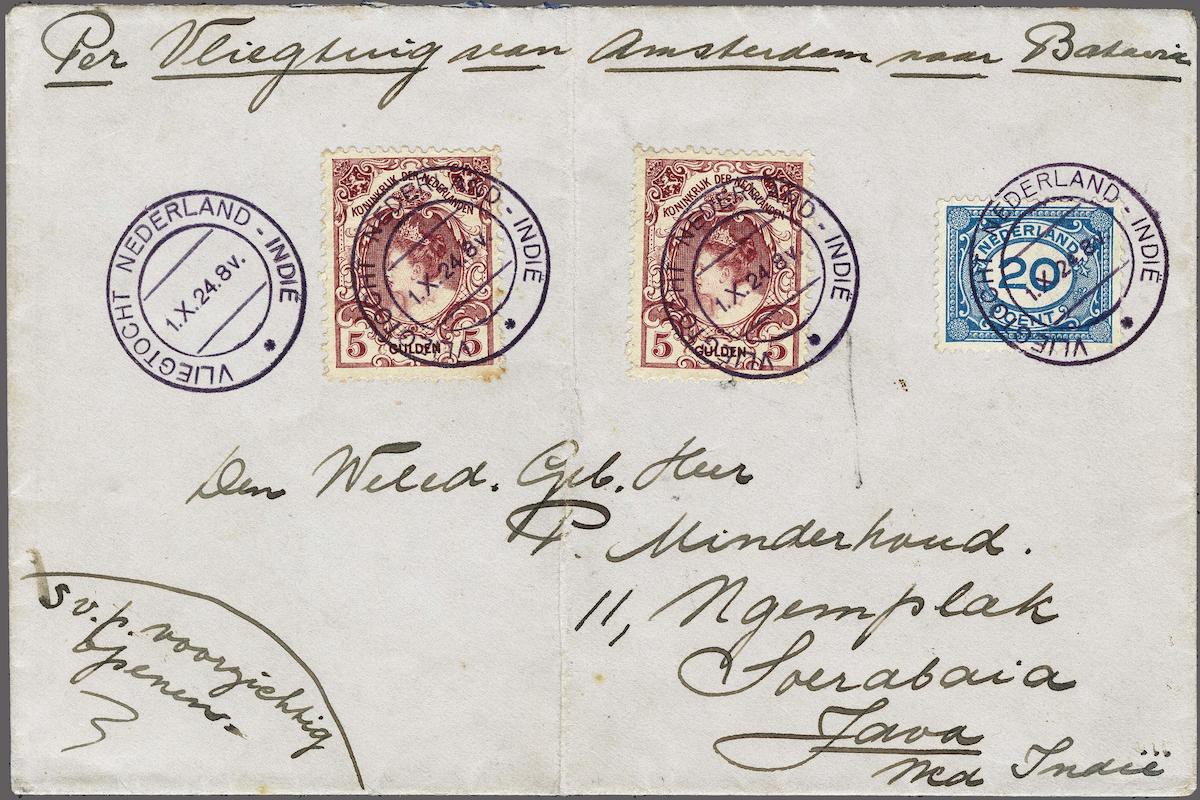 Per Vliegtuig van Amsterdam naar Batavia
VLIEGTOCHT NEDERLAND - INDIË *
1.X.24.8V.
KONINKRIJK DER NEDERLANDEN
5 GULDEN 5
VLIEGTOCHT NEDERLAND - INDIË *
1.X.24.8V.
KONINKRIJK DER NEDERLANDEN
5 GULDEN 5
VLIEGTOCHT NEDERLAND - INDIË *
1.X.24.8V.
NEDERLAND
20
CENT
VLIEGTOCHT NEDERLAND - INDIË *
1.X.24.8V.
Den Weled. Geb. Heer
P. Minderhoud.
11, Ngemplak
Soerabaia
Java
Ned Indië
S v.p. voorzichtig
openen.